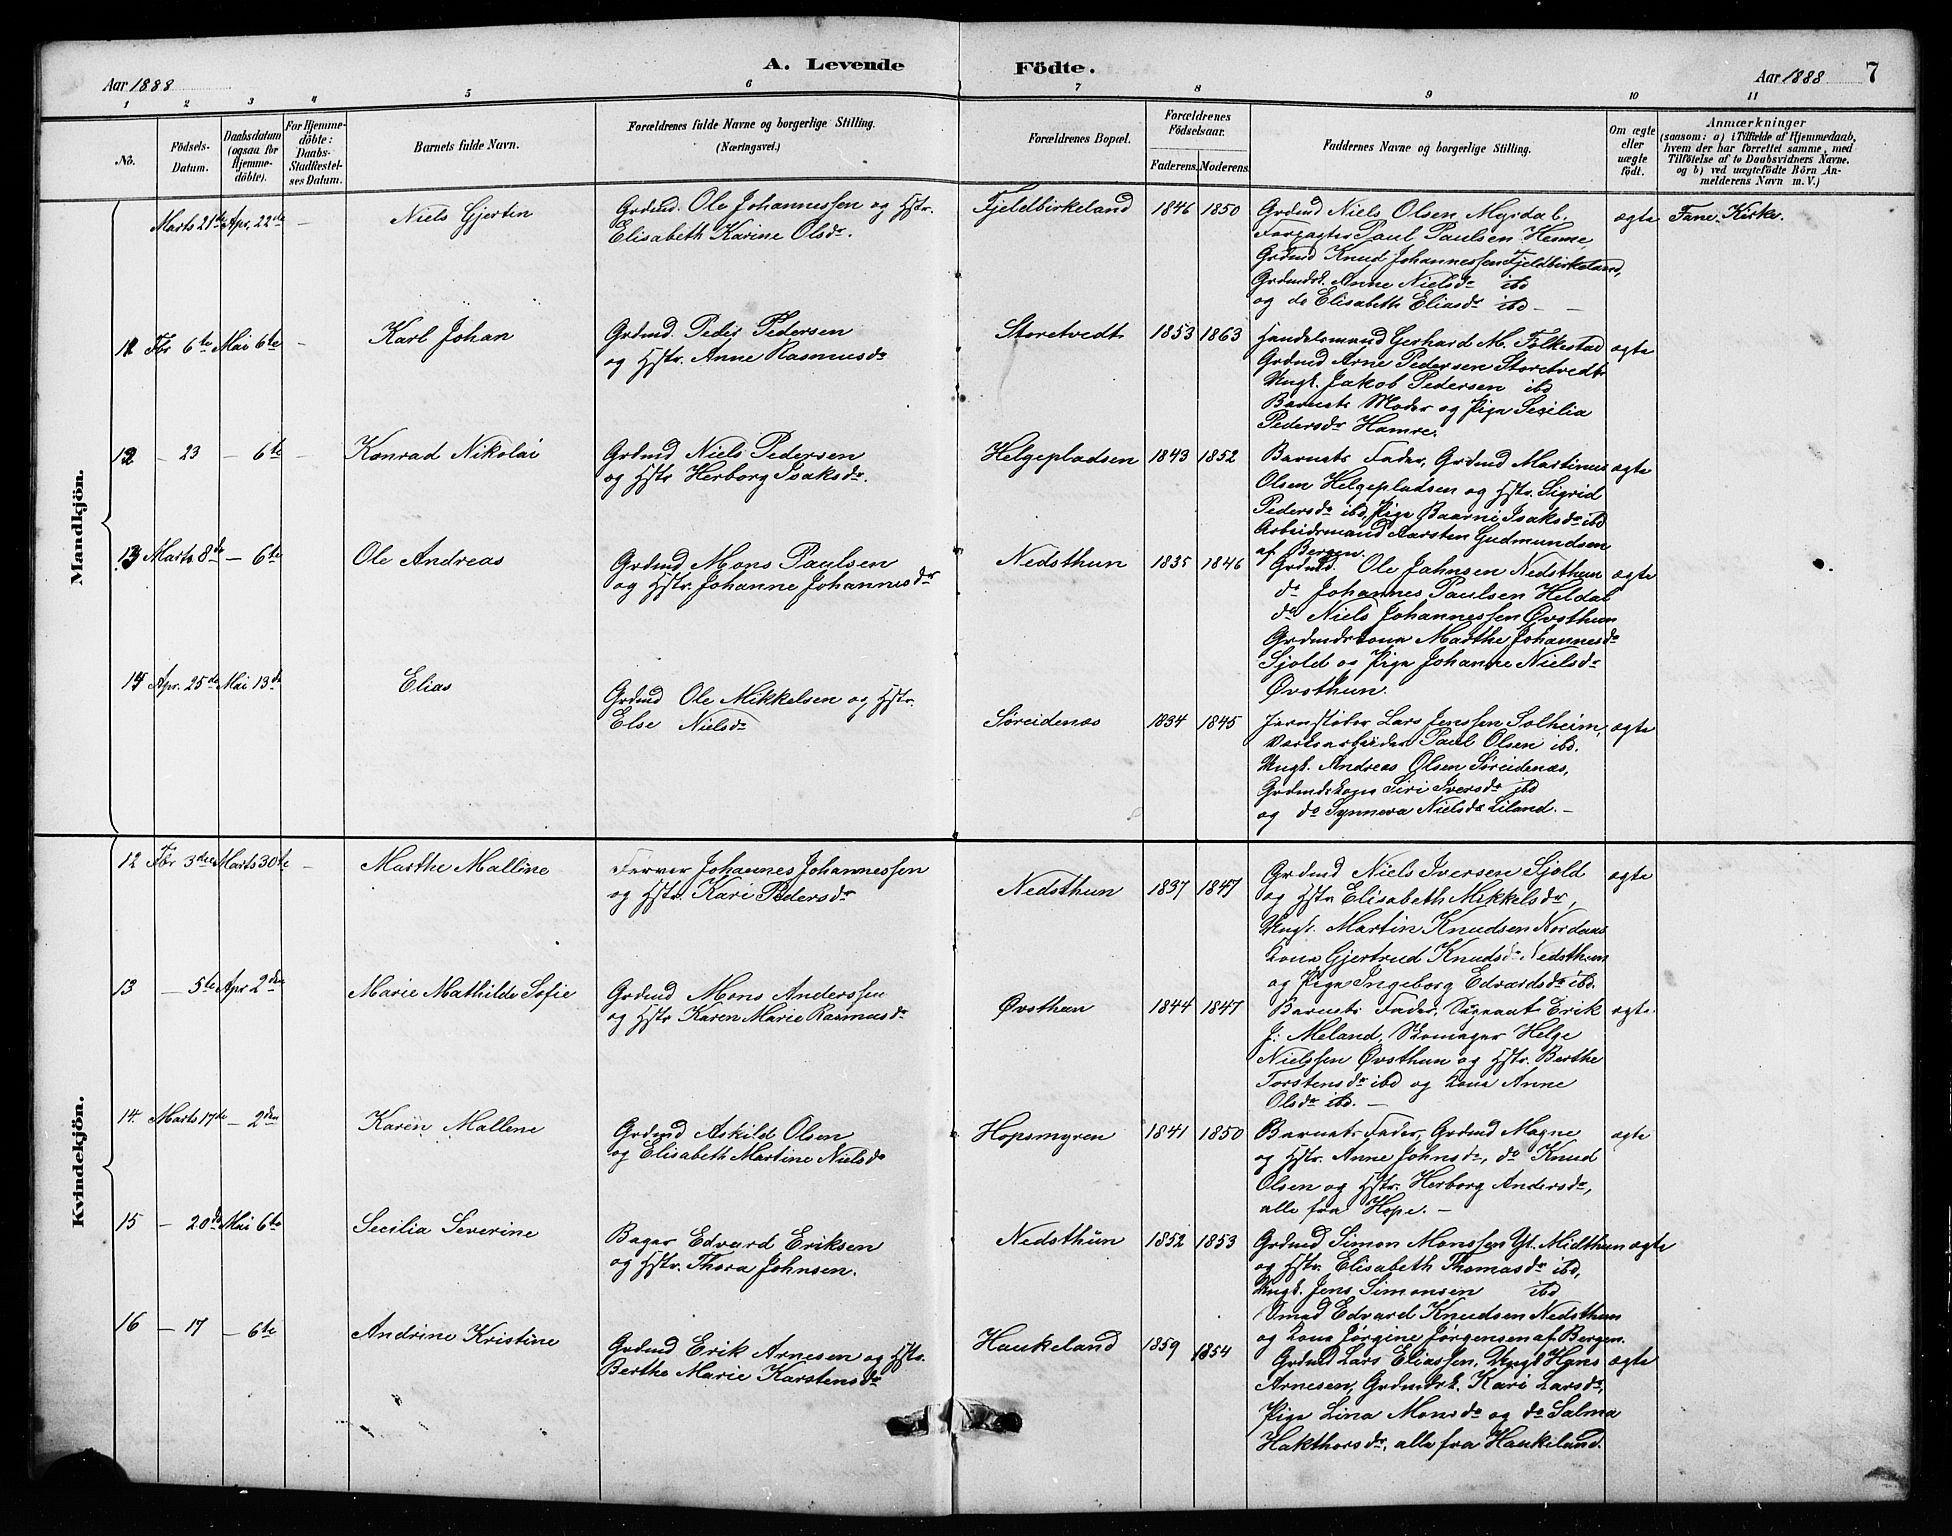 A. Levende Födte.
Aar 1888
Aar 1888 7
1 2 3 4 5 6 7 8 9 10 11
No.
Födsels-
Datum.
Daabsdatum
(ogsaa for
Hjemme-
döbte).
For Hjemme-
döbte:
Daabs-
Stadfæstel-
ses Datum.
Barnets fulde Navn.
Forældrenes fulde Navne og borgerlige Stilling.
(Næringsvei.)
Forældrenes Bopæl.
Forældrenes
Födselsaar.
Faderens. Moderens.
Faddernes Navne og borgerlige Stilling.
Om ægte
eller
uægte
födt.
Anmærkninger
(saasom: a) i Tilfælde af Hjemmedaab,
hvem der har forrettet samme, med
Tilföielse af to Daabsvidners Navne.
og b) ved uægtefödte Börn An-
melderens Navn m. V.)
Mandkjön.
Marts 21de Apr. 22de — Niels Gjertin
Grdmd. Ole Johannessen og Hstr.
Elisabeth Karine Olsdr.
Fjeldbirkeland 1846 1850
Grdmd Niels Olsen Myrdal,
Forpagter Paul Paulsen Henne
Grdmd Knud Johannessen Fjeldbirkeland,
Grdmdsk. Anne Nielsdr ibd
og do Elisabeth Eliasdr ibd —
ægte Fane Kirke.
11 Fbr 6te Mai 6te — Karl Johan
Grdmd. Peder Pedersen
og Hstr. Anne Rasmusdr
Storetvedt 1853 1863
Handelsmand Gerhard M. Folkestad
Grdmd Arne Pedersen Storetvedt
Ungk. Jakob Pedersen ibd
Barnets Moder og Pige Secilia
Pedersdr Hamre.
ægte
12 — 23 — 6te — Konrad Nikolai
Grdmd Niels Pedersen
og Hstr Herborg Isaksdr.
Helgepladsen 1843 1852
Barnets Fader, Grdmd Martinus
Olsen Helgepladsen og Hstr. Sigrid
Pedersdr ibd, Pige Baarni Isaksdr ibd
Arbeidsmand Karsten Gudmundsen
af Bergen.
ægte
13 Marts 8de — 6te Ole Andreas
Grdmd Mons Paulsen
og Hstr. Johanne Johannesdr
Nedsthun 1835 1846
Grdmd. Ole Jahnsen Nedsthun
do Johannes Paulsen Heldal
do Niels Johannessen Øvsthun
Grdmdskona Marthe Johannesdr
Sjold og Pige Johanne Nielsdr
Øvsthun.
ægte
Apr. 25de Mai 13de Elias
Grdmd Ole Mikkelsen og Hstr.
Else Nielsdr
Søreidenæs 1834 1845
Jernstøber Lars Jenssen Solheim,
Værksarbeider Paul Olsen ibd.
Ungk. Andreas Olsen Søreidenæs,
Grdmdskona Siri Iversdr ibd
og do Synneva Nielsdr Liland. —
ægte
Kvindekjön.
12 Fbr 3die Marts 30te — Marthe Malline
Farver Johannes Johannessen
og Hstr. Kari Pedersdr
Nedsthun 1837 1847
Grdmd Niels Iversen Sjold
og Hstr Elisabeth Mikkelsdr,
Ungk. Martin Knudsen Nordaas
Kona Gjertrud Knudsdr Nedsthun
og Pige Ingeborg Edvardsdr ibd.
ægte
13 — 5te Apr 2den Marie Mathilde Sofie
Grdmd Mons Anderssen
og Hstr Karen Marie Rasmusdr
Øvsthun 1844 1847
Barnets Fader, Erik
J: Meland, Skomager Helge
Nielssen Øvsthun og Hstr. Berthe
Torstensdr ibd og Kona Anne
Olsdr ibd. —
ægte.
14. Marts 17de — 2den Karen Mallene
Grdmd Askild Olsen
og Elisabeth Martine Nielsdr
Hopsmyren 1841 1850
Barnets Fader, Grdmd Magne
og Hstr. Anne Johnsdr, do Knud
Olsen og Hstr. Herborg Andersdr,
alle fra Hope. —
ægte
15 — 20de Mai 6te Secilia Severine
Bager Edvard Eriksen
og Hstr. Thora Johnsen.
Nedsthun 1852 1853
Grdmd Simon Monssen Yt. Midthun
og Hstr. Elisabeth Thomasdr ibd,
Ungk. Jens Simonsen ibd
Smed Edvard Knudsen Nedsthun
og Kona Jørgine Jørgensen af Bergen.
ægte
16 — 17 — 6te Andrine Kristine
Grdmd Erik Arnesen og Hstr.
Berthe Marie Karstensdr
Haukeland 1859 1854
Grdmd Lars Eliassen, Ungk Hans
Arnesen, Grdmdsk. Kari Larsdr,
Pige Lina Monsdr og do Salma
Hakthorsdr, alle fra Haukeland.
ægte